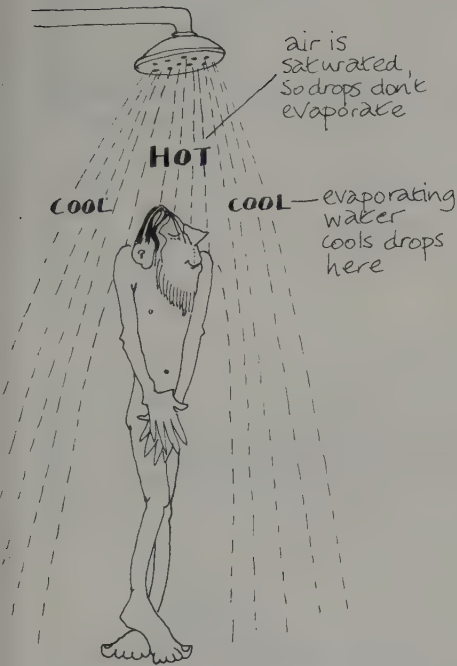 air is
saturated,
so drops don't
evaporate
HOT
COOL
COOL
evaporating
water
cools drops
here